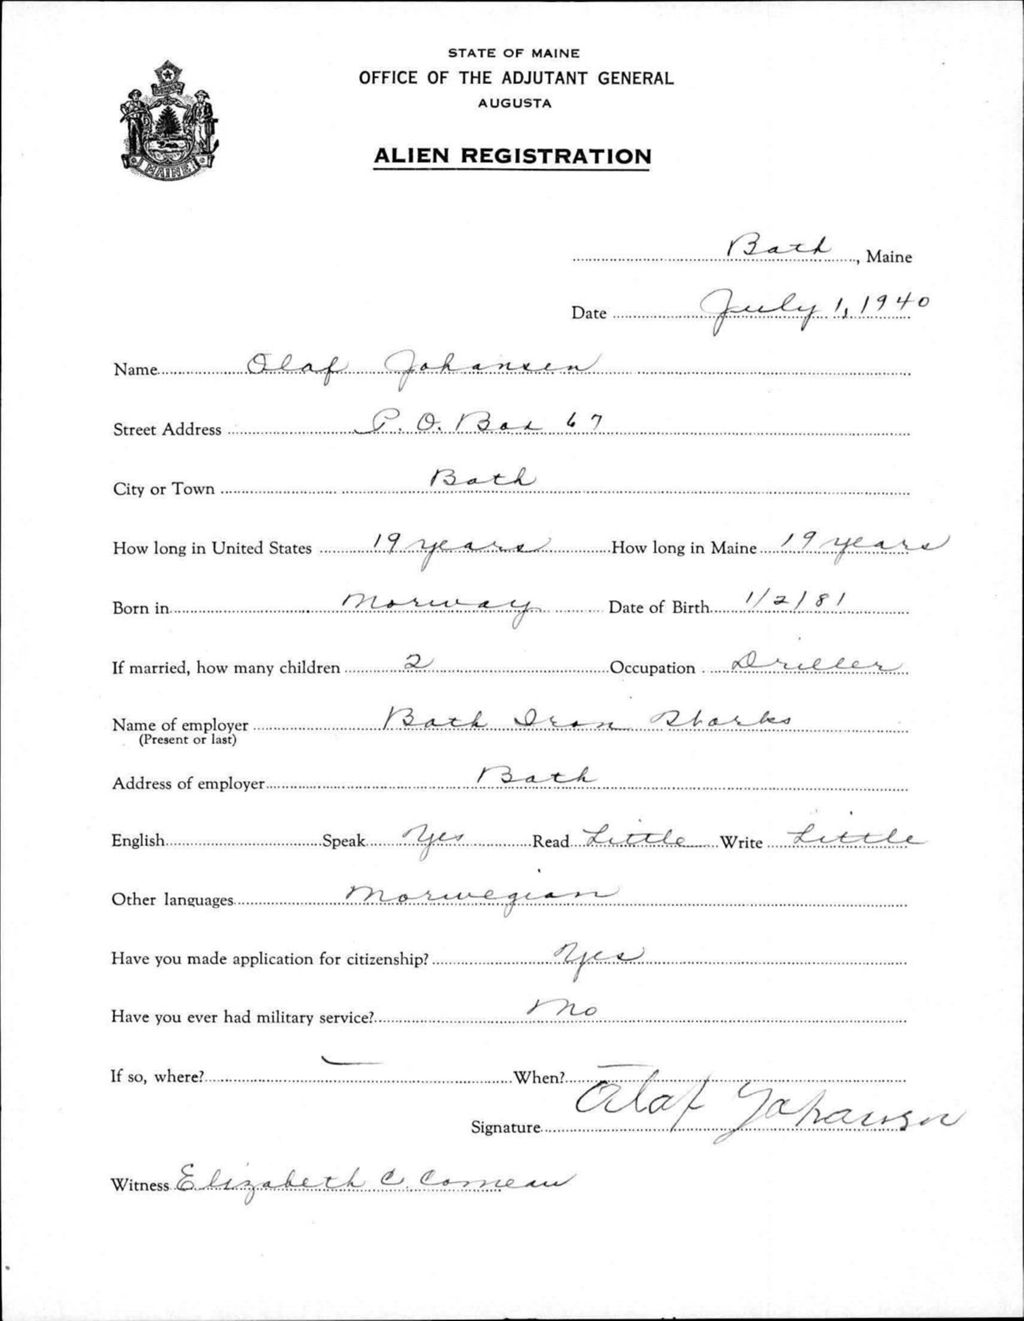 STATE OF MAINE
OFFICE OF THE ADJUTANT GENERAL
AUGUSTA
ALIEN REGISTRATION
MAINE
Bath, Maine
Date July 1, 1940
Name Olaf Johansen
Street Address P. O. Box 67
City or Town Bath
How long in United States 19 years How long in Maine 19 years
Born in Norway Date of Birth 1/2/81
If married, how many children 2 Occupation Driller
Name of employer Bath Iron Works
(Present or last)
Address of employer Bath
English Speak Yes Read Little Write Little
Other languages Norwegian
Have you made application for citizenship? Yes
Have you ever had military service? No
If so, where? — When?
Signature Olaf Johansen
Witness Elizabeth C. Comeau